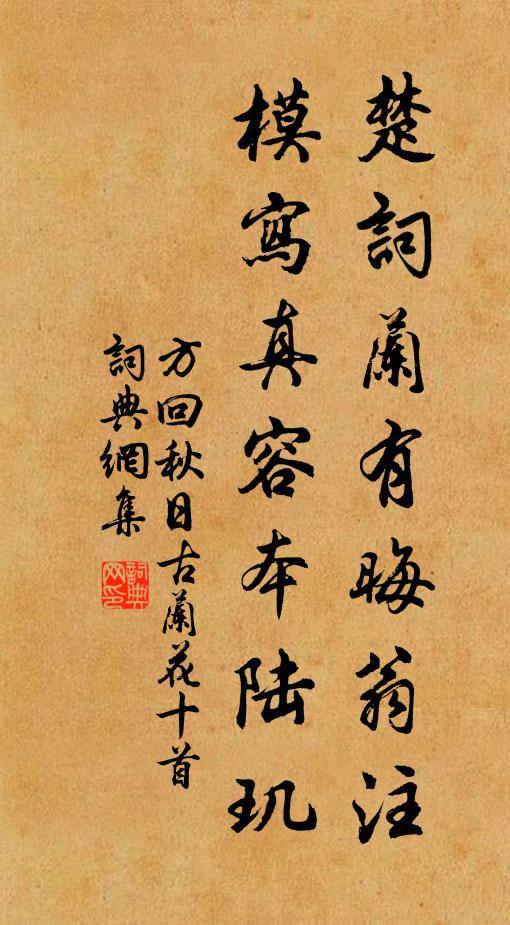 楚詞蘭有晦翁注
模寫真容本陸玑
方回秋日古蘭花十首
詞典網集
詞典网印